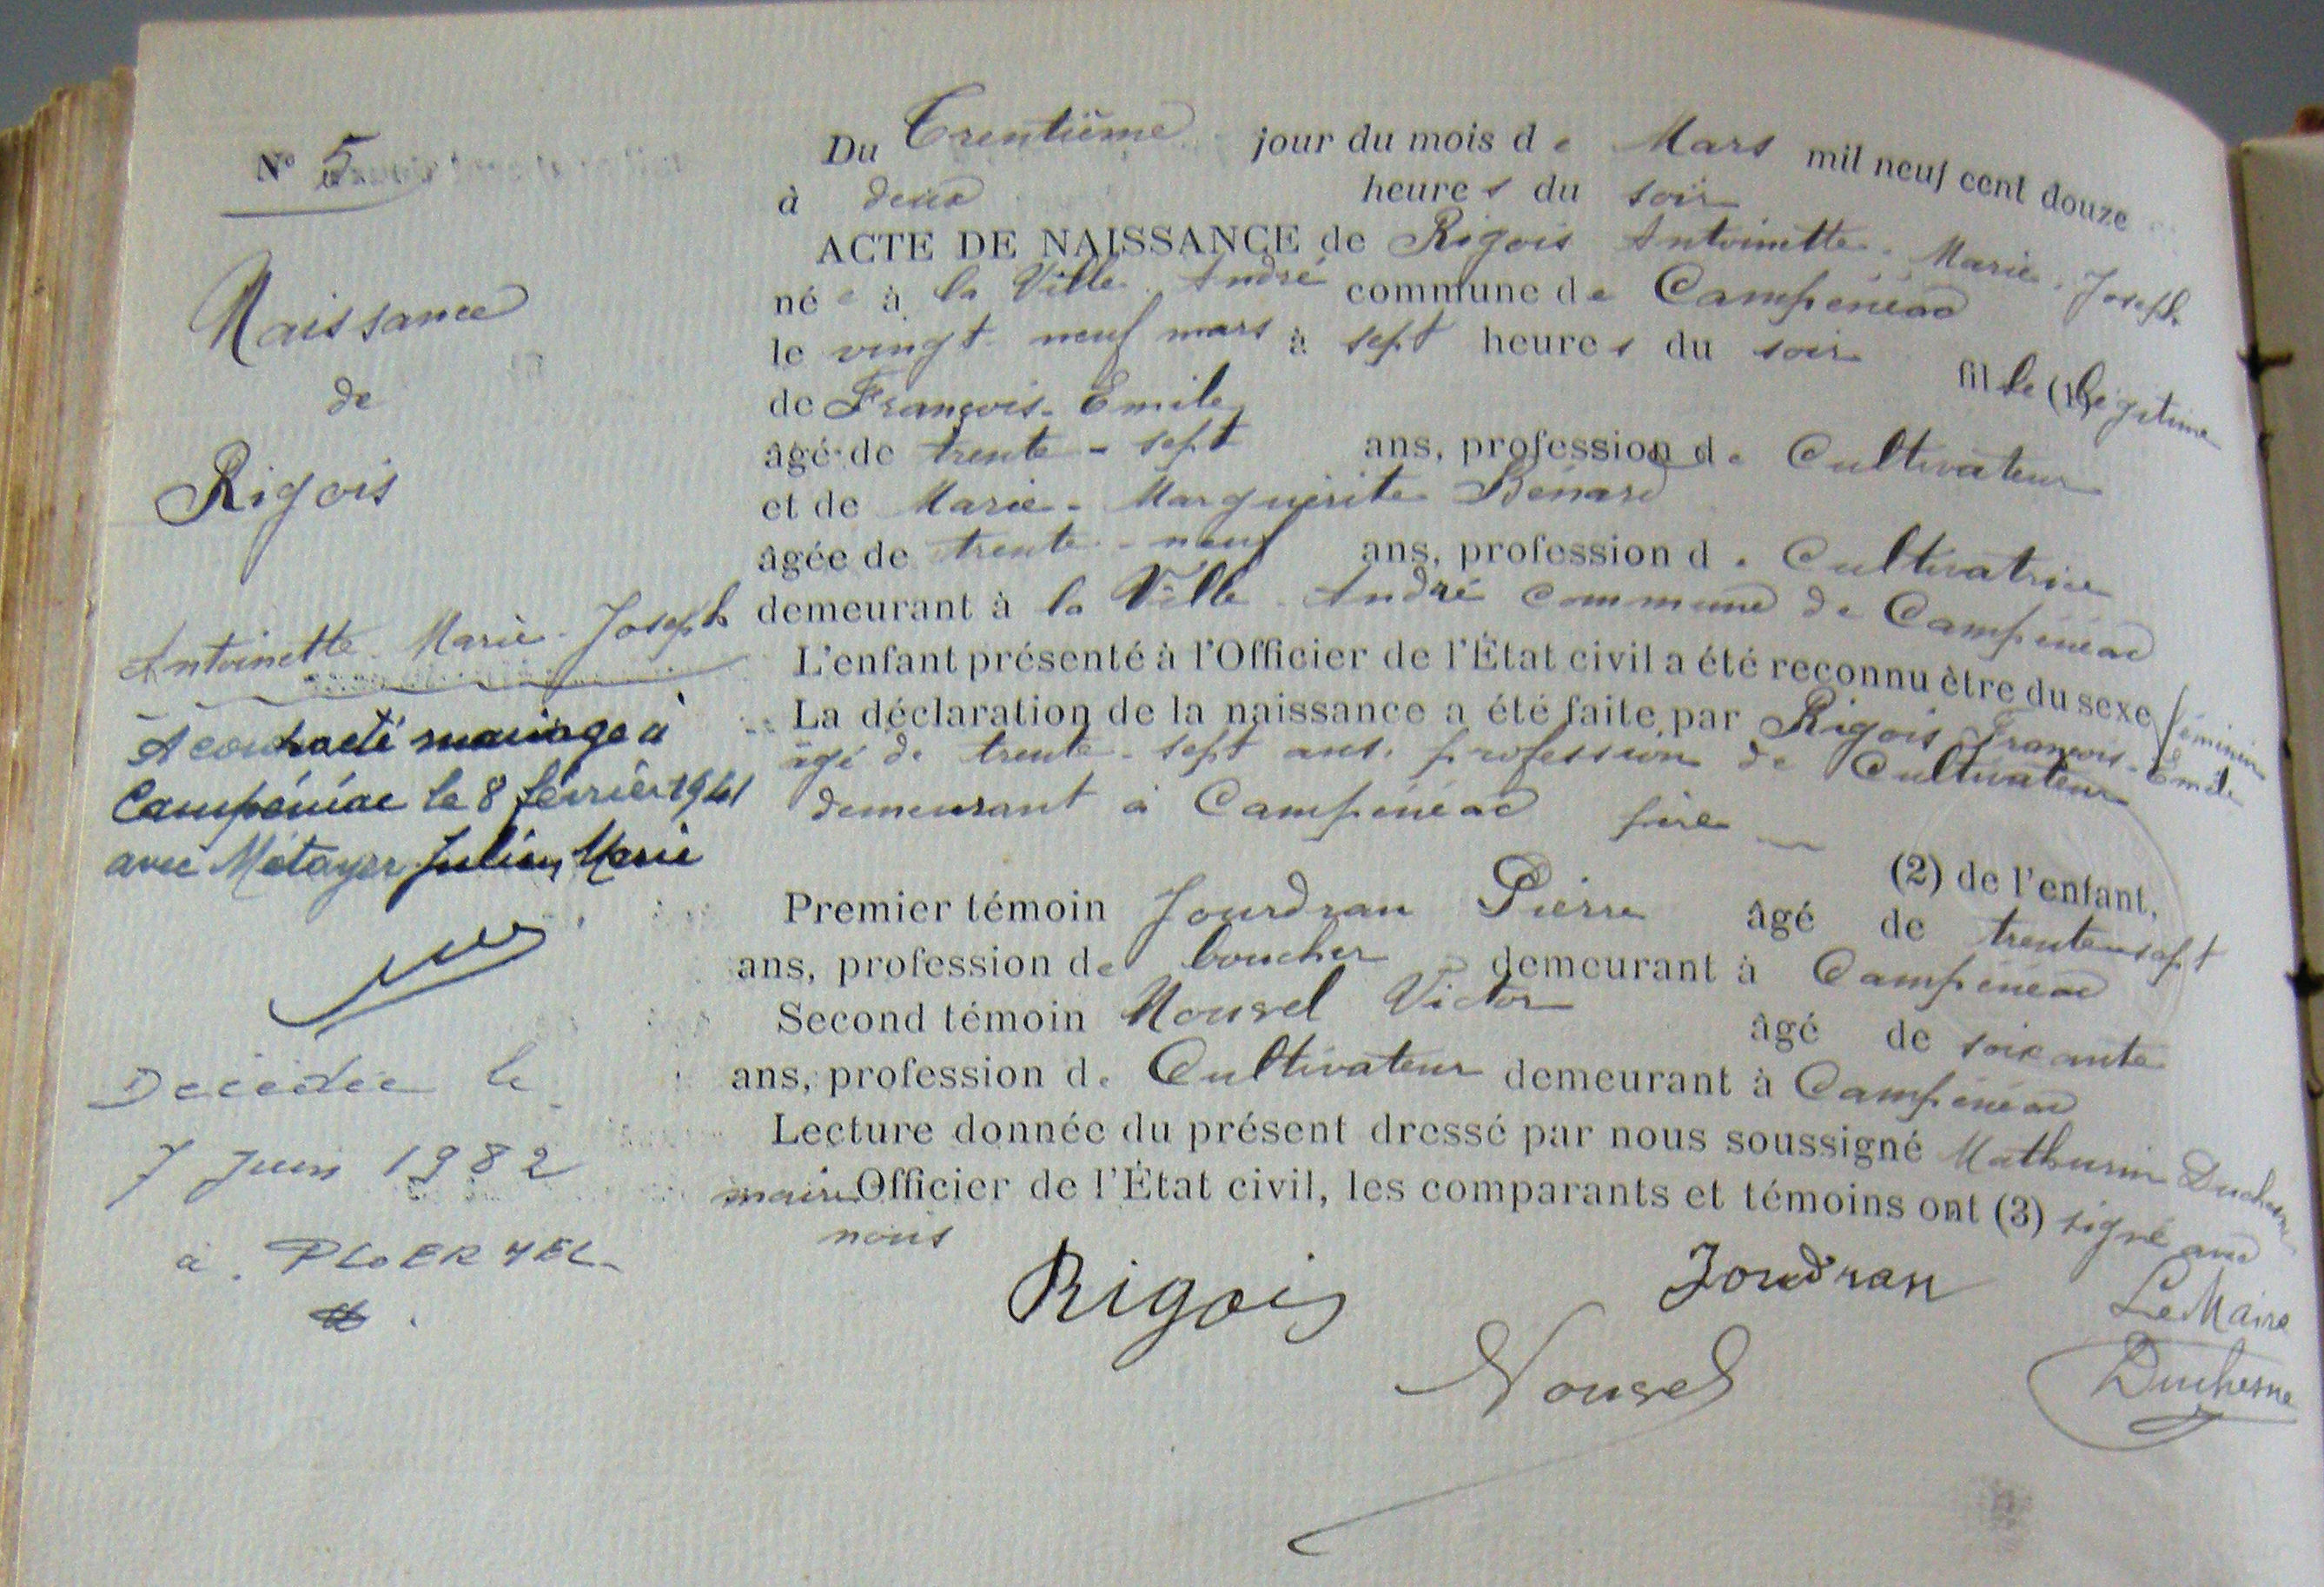 N° 5
Naissance
de
Rigois
Antoinette Marie Joseph
A contracté mariage à
Campénéac le 8 février 1941
avec Métayer Julien Marie
Décédée le
7 Juin 1982
à PLOERMEL
Du Trentième jour du mois de Mars mil neuf cent douze
à deux heures du soir
ACTE DE NAISSANCE de Rigois Antoinette Marie Joseph
née à la Ville André commune de Campénéac
le vingt neuf mars à sept heures du soir fille (1) légitime
de François Emile
âgé de trente-sept ans, profession de Cultivateur
et de Marie-Marguerite Bénard
âgée de trente-neuf ans, profession de Cultivatrice
demeurant à la Ville André commune de Campénéac
L'enfant présenté à l'Officier de l'État civil a été reconnu être du sexe féminin
La déclaration de la naissance a été faite par Rigois François-Emile
âgé de trente-sept ans, profession de Cultivateur
demeurant à Campénéac père
(2) de l'enfant,
Premier témoin Jourdran Pierre âgé de trente-sept
ans, profession de boucher demeurant à Campénéac
Second témoin Nouvel Victor âgé de soixante
ans, profession de Cultivateur demeurant à Campénéac
Lecture donnée du présent dressé par nous soussigné Mathurin Duchesne
maire Officier de l'État civil, les comparants et témoins ont (3) signé avec
nous
Rigois
Jourdran
Nouvel
Le Maire
Duchesne